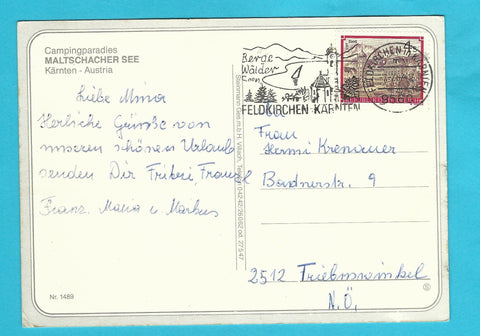 Campingparadies
MALTSCHACHER SEE
Kärnten - Austria
Liebe Minna
Herzliche Grüße von
unseren schönen Urlaub
senden Dir Frieri, Franz
Franz, Maria u. Markus
Nr. 1489
Berge
Wälder
Seen
FELDKIRCHEN KÄRNTEN
4
Frau
Hermi Krenauer
Badnerstr. 9
2512 Tribuswinkel
N.Ö.